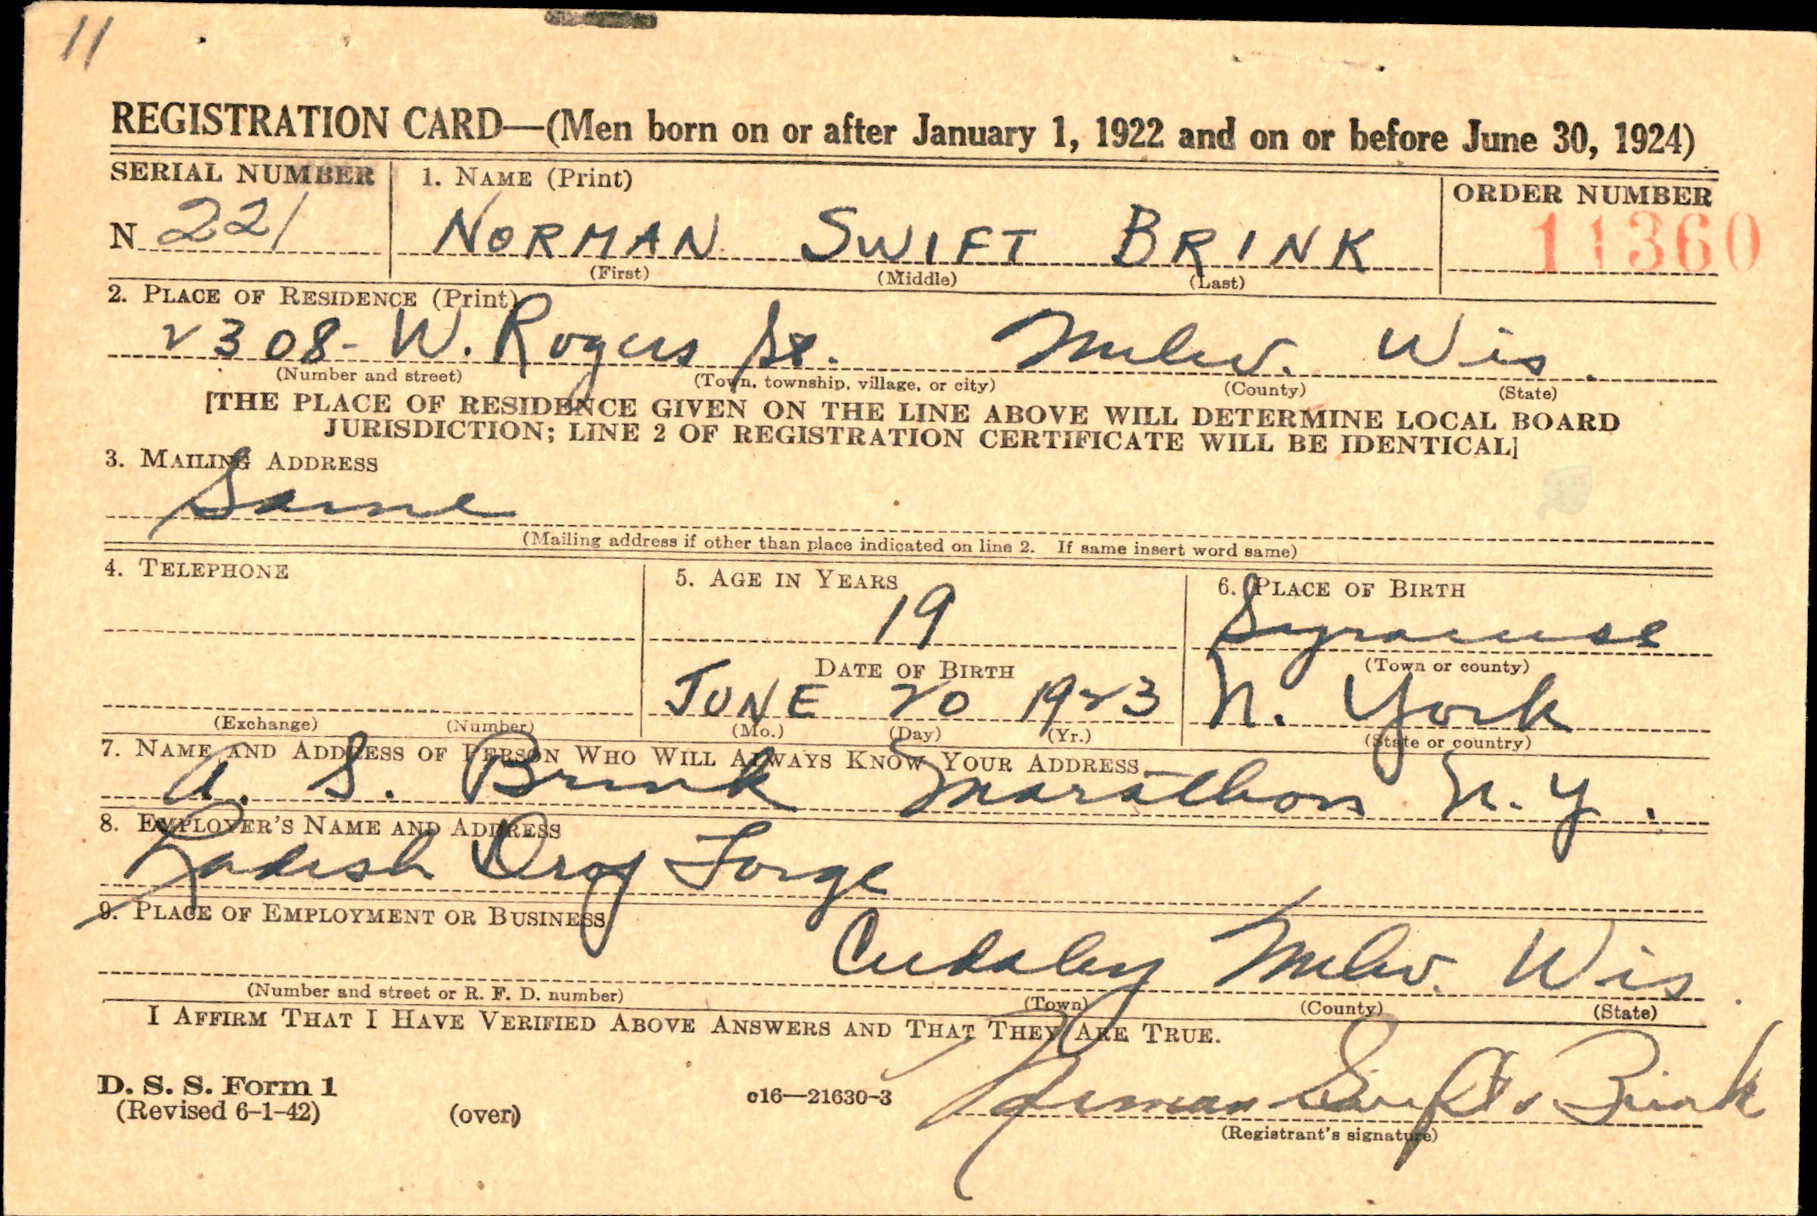 11
REGISTRATION CARD—(Men born on or after January 1, 1922 and on or before June 30, 1924)
SERIAL NUMBER
1. NAME (Print)
ORDER NUMBER
N 221
NORMAN SWIFT BRINK
11360
(First) (Middle) (Last)
2. PLACE OF RESIDENCE (Print)
2308- W. Rogers St. Milw. Wis.
(Number and street) (Town, township, village, or city) (County) (State)
[THE PLACE OF RESIDENCE GIVEN ON THE LINE ABOVE WILL DETERMINE LOCAL BOARD
JURISDICTION; LINE 2 OF REGISTRATION CERTIFICATE WILL BE IDENTICAL]
3. MAILING ADDRESS
Same
(Mailing address if other than place indicated on line 2. If same insert word same)
4. TELEPHONE
(Exchange) (Number)
5. AGE IN YEARS
19
DATE OF BIRTH
JUNE 20 1923
(Mo.) (Day) (Yr.)
6. PLACE OF BIRTH
Syracuse
(Town or county)
N. York
(State or country)
7. NAME AND ADDRESS OF PERSON WHO WILL ALWAYS KNOW YOUR ADDRESS
A. S. Brink Marathon N.Y.
8. EMPLOYER'S NAME AND ADDRESS
Ladish Drop Forge
9. PLACE OF EMPLOYMENT OR BUSINESS
Cudahy Milw. Wis.
(Number and street or R. F. D. number) (Town) (County) (State)
I AFFIRM THAT I HAVE VERIFIED ABOVE ANSWERS AND THAT THEY ARE TRUE.
D. S. S. Form 1
(Revised 6-1-42) (over) c16—21630-3
Norman Swift Brink
(Registrant's signature)